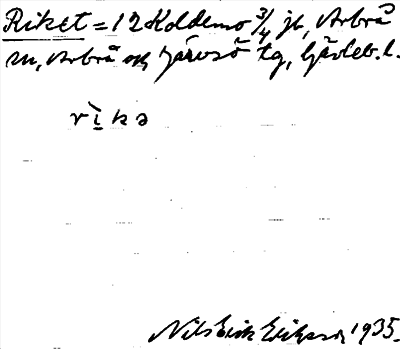 Riket = 12 Koldemo 3/4 jb, Arbrå
sn, Arbrå och Järvsö tg, Gävleb. l.
rìkə
Nils Erik Eriksson 1935.